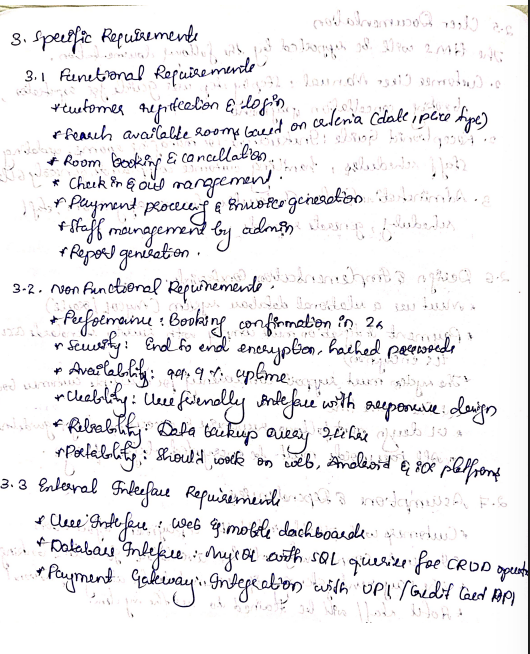 3. Specific Requirements
3.1 Functional Requirements
* customer registration & login
* Search available rooms based on criteria (date, price type)
* Room booking & cancellation.
* Check in & out management.
* Payment processing & Invoice generation
* Staff management by admin
* Report generation.
3.2. Non Functional Requirements.
* Performance: Booking confirmation in 2s
* Security: End to end encryption, hashed passwords
* Availability: 99.9% uptime
* Usability: User friendly interface with responsive design
* Reliability: Data backup every 24hrs
* Portability: Should work on web, Android & iOS platforms
3.3 External Interface Requirements
* User Interface: web & mobile dashboards
* Database Interface: MySQL with SQL queries for CRUD
* Payment Gateway: Integration with UPI/Credit Card API